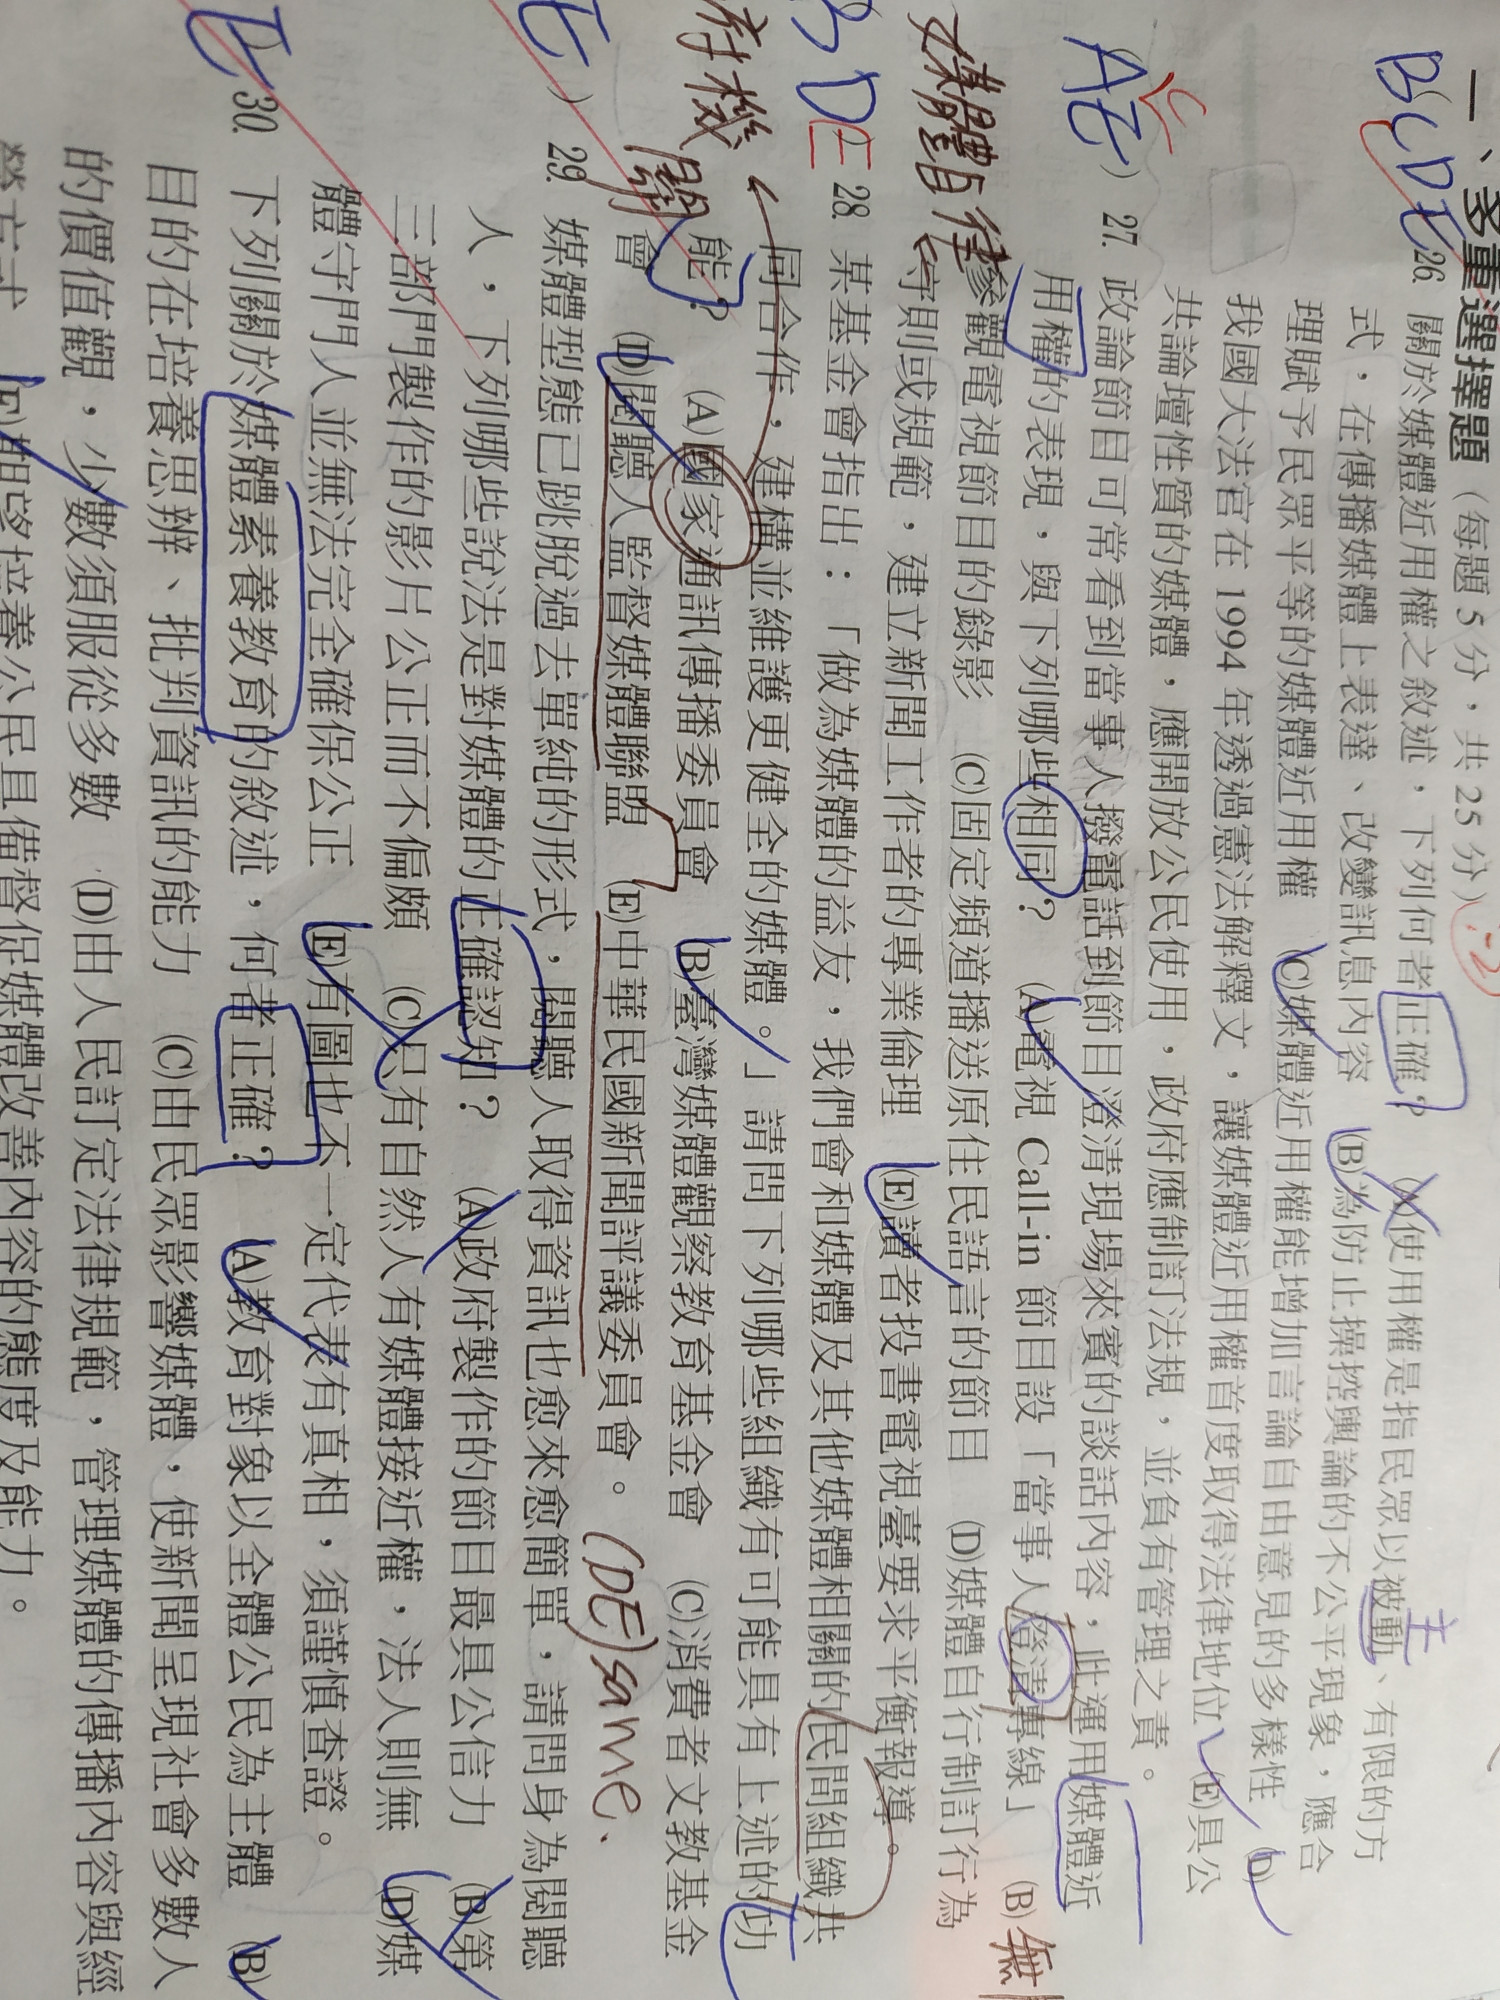 一、多重選擇題（每題 5 分，共 25 分） -2
BCDE 26. 關於媒體近用權之敘述，下列何者正確？ (A)使用權是指民眾以被動、有限的方 主
式，在傳播媒體上表達、改變訊息內容 (B)為防止操控輿論的不公平現象，應合
理賦予民眾平等的媒體近用權 (C)媒體近用權能增加言論自由意見的多樣性 (D)
我國大法官在 1994 年透過憲法解釋文，讓媒體近用權首度取得法律地位 (E)具公
共論壇性質的媒體，應開放公民使用，政府應制訂法規，並負有管理之責。
AE C ) 27. 政論節目可常看到當事人撥電話到節目澄清現場來賓的談話內容，此運用媒體近
用權的表現，與下列哪些相同？ (A)電視 Call-in 節目設「當事人澄清專線」 (B) 無
參觀電視節目的錄影 (C)固定頻道播送原住民語言的節目 (D)媒體自行制訂行為
媒體自律
守則或規範，建立新聞工作者的專業倫理 (E)讀者投書電視臺要求平衡報導。
BDE 28. 某基金會指出：「做為媒體的益友，我們會和媒體及其他媒體相關的民間組織共
同合作，建構並維護更健全的媒體。」請問下列哪些組織有可能具有上述的功
能？ (A)國家通訊傳播委員會 (B)臺灣媒體觀察教育基金會 (C)消費者文教基金
府機關
會 (D)閱聽人監督媒體聯盟 (E)中華民國新聞評議委員會。 (DE) same.
E ) 29. 媒體型態已跳脫過去單純的形式，閱聽人取得資訊也愈來愈簡單，請問身為閱聽
人，下列哪些說法是對媒體的正確認知？ (A)政府製作的節目最具公信力 (B)第
三部門製作的影片公正而不偏頗 (C)只有自然人有媒體接近權，法人則無 (D)媒
體守門人並無法完全確保公正 (E)有圖也不一定代表有真相，須謹慎查證。
E 30. 下列關於媒體素養教育的敘述，何者正確？ (A)教育對象以全體公民為主體 (B)
目的在培養思辨、批判資訊的能力 (C)由民眾影響媒體，使新聞呈現社會多數人
的價值觀，少數須服從多數 (D)由人民訂定法律規範，管理媒體的傳播內容與經
營方式 (E)期望培養公民具備督促媒體改善內容的態度及能力。